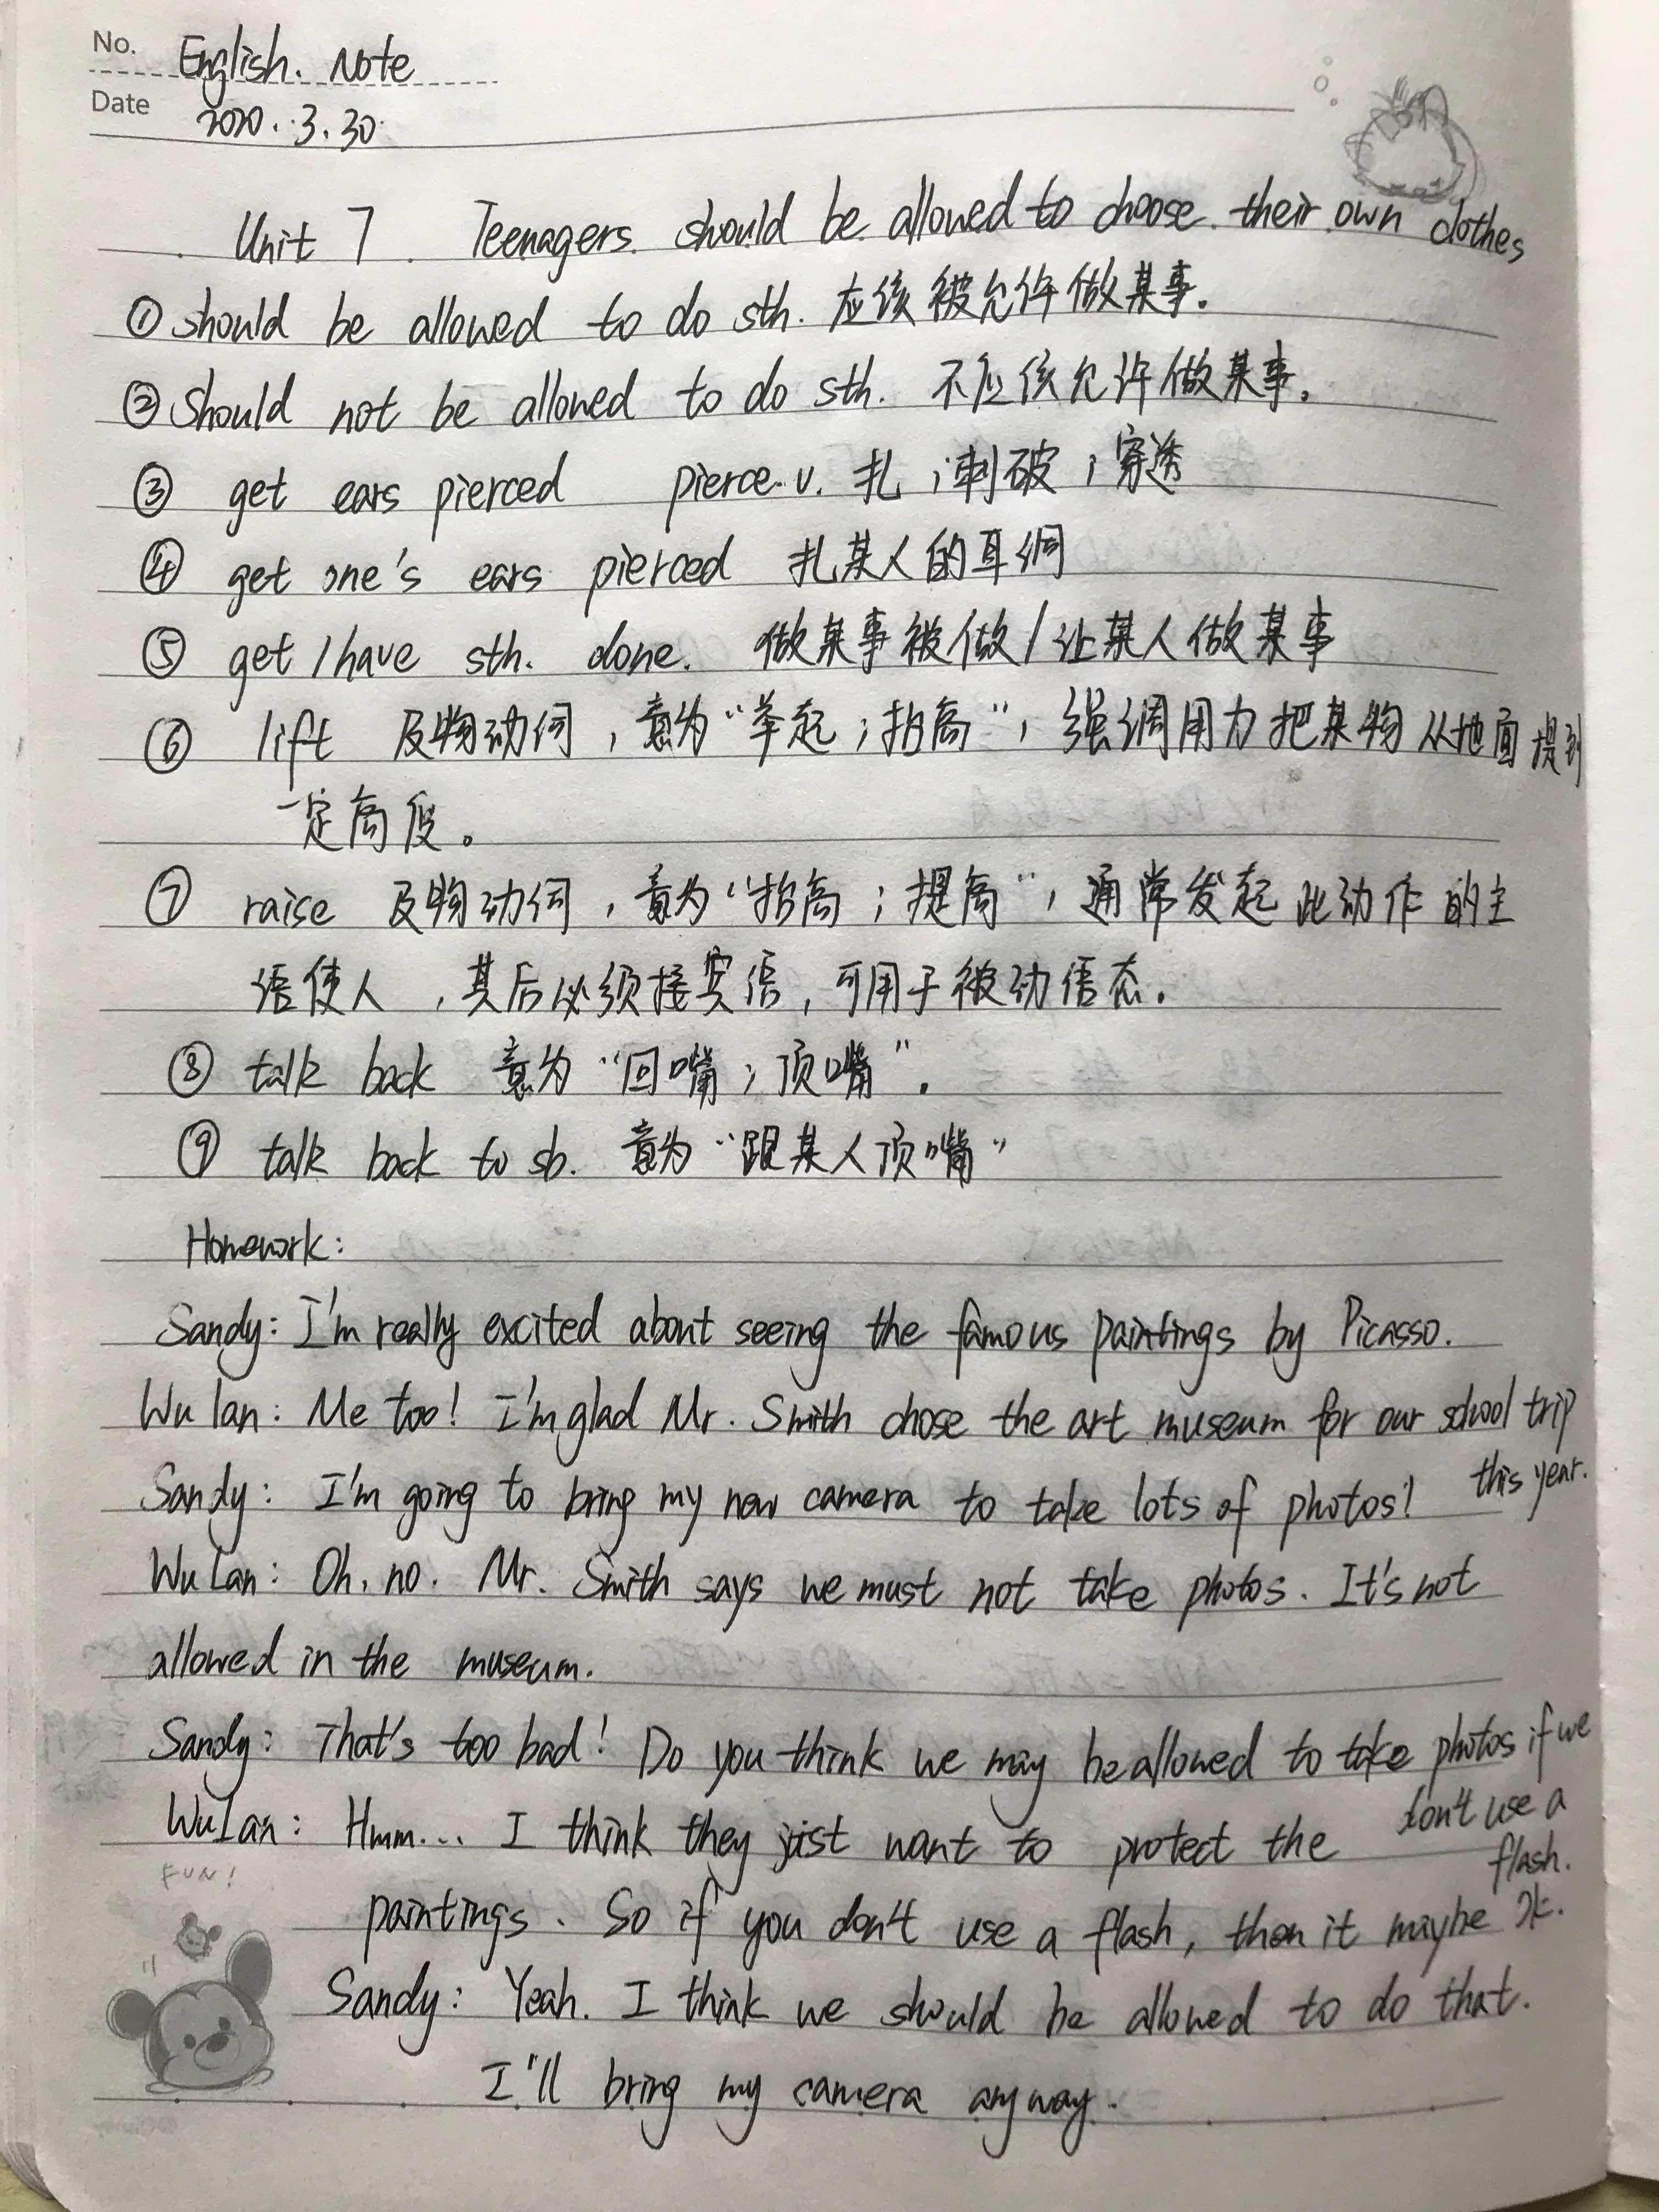 No. English. Note
Date 2020.3.30
Unit 7 Teenagers should be allowed to choose their own clothes
① should be allowed to do sth. 应该被允许做某事.
② Should not be allowed to do sth. 不应该允许做某事。
③ get ears pierced pierce v. 扎；刺破；穿透
④ get one's ears pierced 扎某人的耳洞
⑤ get/have sth. done. 做某事被做/让某人做某事
⑥ lift 及物动词，意为“举起；抬高”，强调用力把某物从地面提到
一定高度。
⑦ raise 及物动词，意为“抬高；提高”，通常发起此动作的主
语使人，其后必须接宾语，可用于被动语态.
⑧ talk back 意为“回嘴；顶嘴”.
⑨ talk back to sb. 意为“跟某人顶嘴”
Homework:
Sandy: I'm really excited about seeing the famous paintings by Picasso.
Wu lan: Me too! I'm glad Mr. Smith chose the art museum for our school trip
this year.
Sandy: I'm going to bring my new camera to take lots of photos!
Wu Lan: Oh, no. Mr. Smith says we must not take photos. It's not
allowed in the museum.
Sandy: That's too bad! Do you think we may be allowed to take photos if we
don't use a
flash.
Wu Lan: Hmm... I think they just want to protect the
paintings. So if you don't use a flash, then it maybe ok.
Sandy: Yeah. I think we should be allowed to do that.
I'll bring my camera anyway.
FUN!